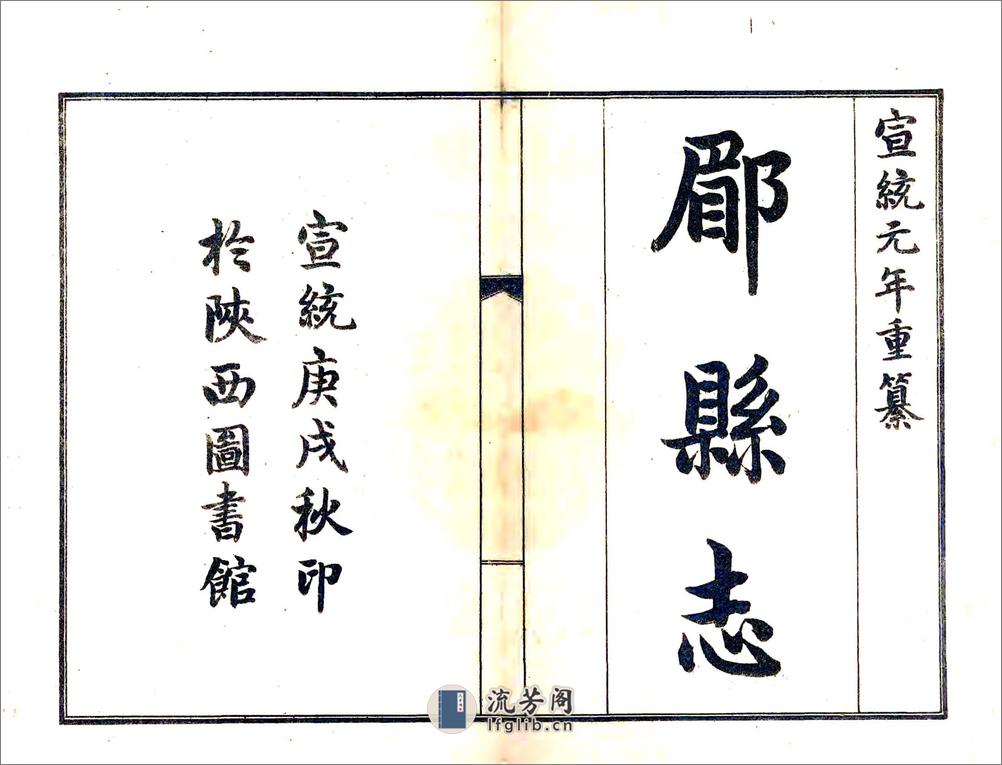 宣統元年重纂
郿縣志
宣統庚戌秋印
於陝西圖書館
流芳阁
lfglib.cn